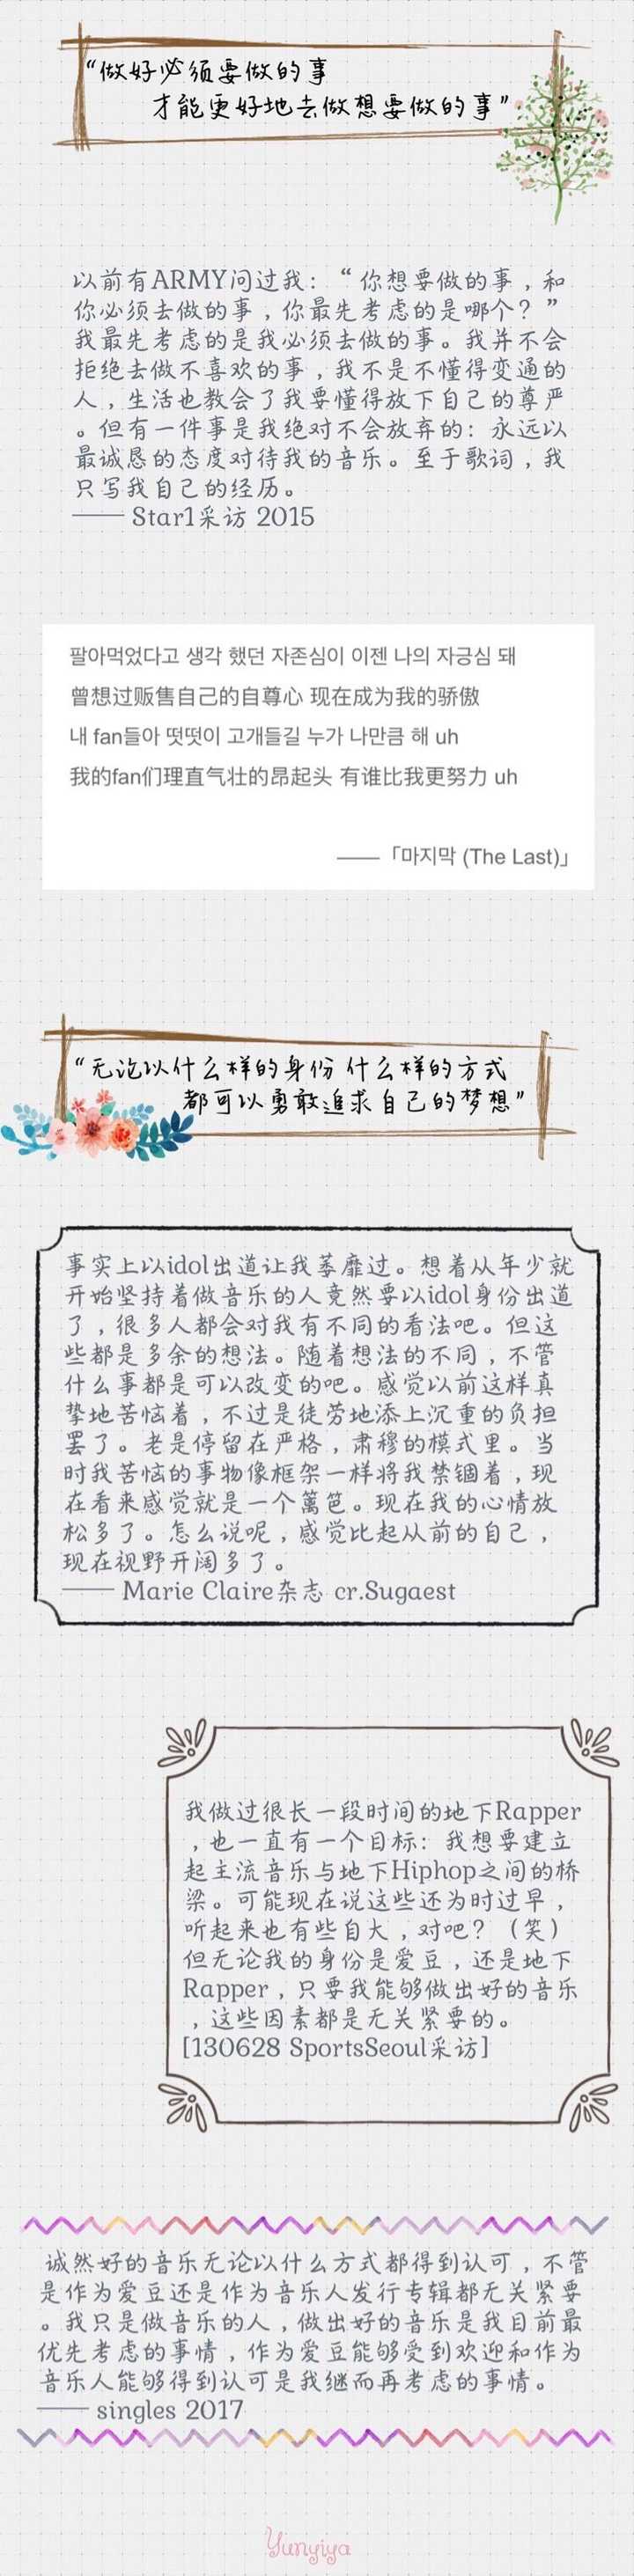 “做好必须要做的事
才能更好地去做想要做的事”
以前有ARMY问过我：“你想要做的事，和
你必须去做的事，你最先考虑的是哪个？”
我最先考虑的是我必须去做的事。我并不会
拒绝去做不喜欢的事，我不是不懂得变通的
人，生活也教会了我要懂得放下自己的尊严
。但有一件事是我绝对不会放弃的：永远以
最诚恳的态度对待我的音乐。至于歌词，我
只写我自己的经历。
—— Star1采访 2015
팔아먹었다고 생각 했던 자존심이 이젠 나의 자긍심 돼
曾想过贩售自己的自尊心 现在成为我的骄傲
내 fan들아 떳떳이 고개들길 누가 나만큼 해 uh
我的fan们理直气壮的昂起头 有谁比我更努力 uh
——「마지막 (The Last)」
“无论以什么样的身份 什么样的方式
都可以勇敢追求自己的梦想”
事实上以idol出道让我萎靡过。想着从年少就
开始坚持着做音乐的人竟然要以idol身份出道
了，很多人都会对我有不同的看法吧。但这
些都是多余的想法。随着想法的不同，不管
什么事都是可以改变的吧。感觉以前这样真
挚地苦恼着，不过是徒劳地添上沉重的负担
罢了。老是停留在严格，肃穆的模式里。当
时我苦恼的事物像框架一样将我禁锢着，现
在看来感觉就是一个篱笆。现在我的心情放
松多了。怎么说呢，感觉比起从前的自己，
现在视野开阔多了。
—— Marie Claire杂志 cr.Sugaest
我做过很长一段时间的地下Rapper
，也一直有一个目标：我想要建立
起主流音乐与地下Hiphop之间的桥
梁。可能现在说这些还为时过早，
听起来也有些自大，对吧？（笑）
但无论我的身份是爱豆，还是地下
Rapper，只要我能够做出好的音乐
，这些因素都是无关紧要的。
[130628 SportsSeoul采访]
诚然好的音乐无论以什么方式都得到认可，不管
是作为爱豆还是作为音乐人发行专辑都无关紧要
。我只是做音乐的人，做出好的音乐是我目前最
优先考虑的事情，作为爱豆能够受到欢迎和作为
音乐人能够得到认可是我继而再考虑的事情。
—— singles 2017
Yunyiya